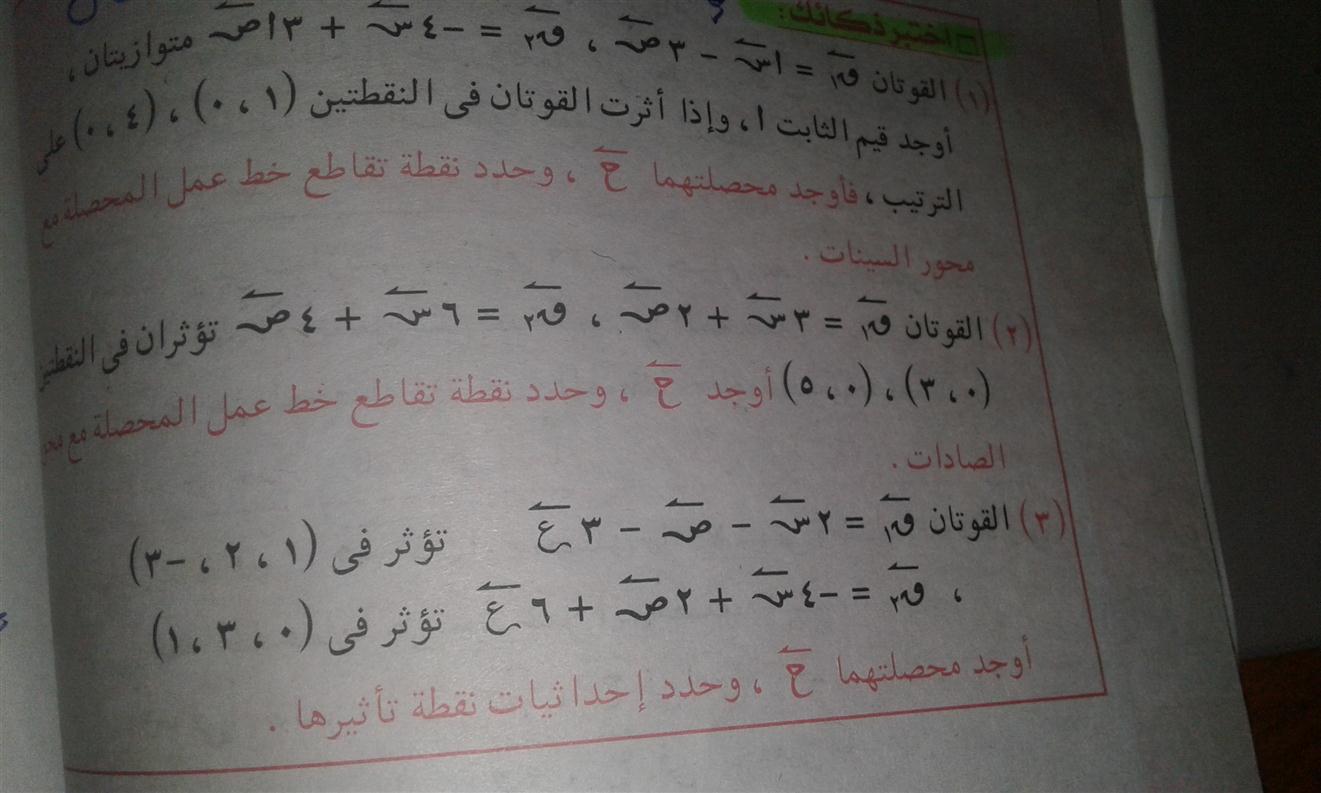 اختبر ذكائك:
(١) القوتان ق١ = أس − ٣ ص ، ق٢ = −٤ س + ٣ أ ص متوازيتان ،
أوجد قيم الثابت أ ، وإذا أثرت القوتان فى النقطتين (١ ، ٠) ، (٤ ، ٠) على
الترتيب ، فأوجد محصلتهما ح ، وحدد نقطة تقاطع خط عمل المحصلة مع
محور السينات .
(٢) القوتان ق١ = ٣ س + ٢ ص ، ق٢ = ٦ س + ٤ ص تؤثران فى
(٠ ، ٣) ، (٠ ، ٥) أوجد ح ، وحدد نقطة تقاطع خط عمل المحصلة مع
الصادات .
(٣) القوتان ق١ = ٢ س − ص − ٣ ع تؤثر فى (١ ، ٢ ، −٣)
، ق٢ = −٤ س + ٢ ص + ٦ ع تؤثر فى (٠ ، ٣ ، ١)
أوجد محصلتهما ح ، وحدد إحداثيات نقطة تأثيرها .